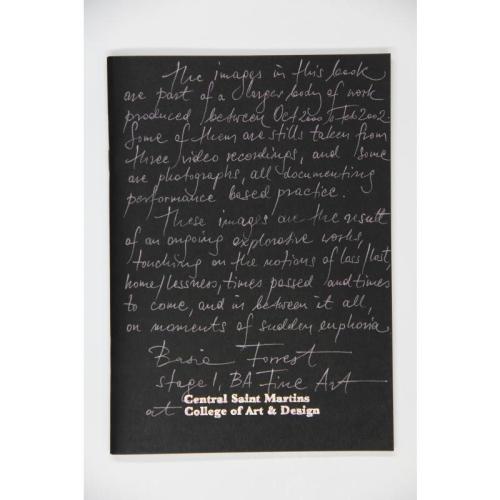 The images in this book
are part of a larger body of work
produced between Oct 2000 to Feb 2002.
Some of them are stills taken from
three video recordings, and some
are photographs, all documenting
performance based practice.
These images are the result
of an ongoing explorative works,
touching on the notions of loss/lost,
home/lessness, times passed and times
to come, and in between it all,
on moments of sudden euphoria
Basia Forrest
stage 1, BA Fine Art
at Central Saint Martins
College of Art & Design